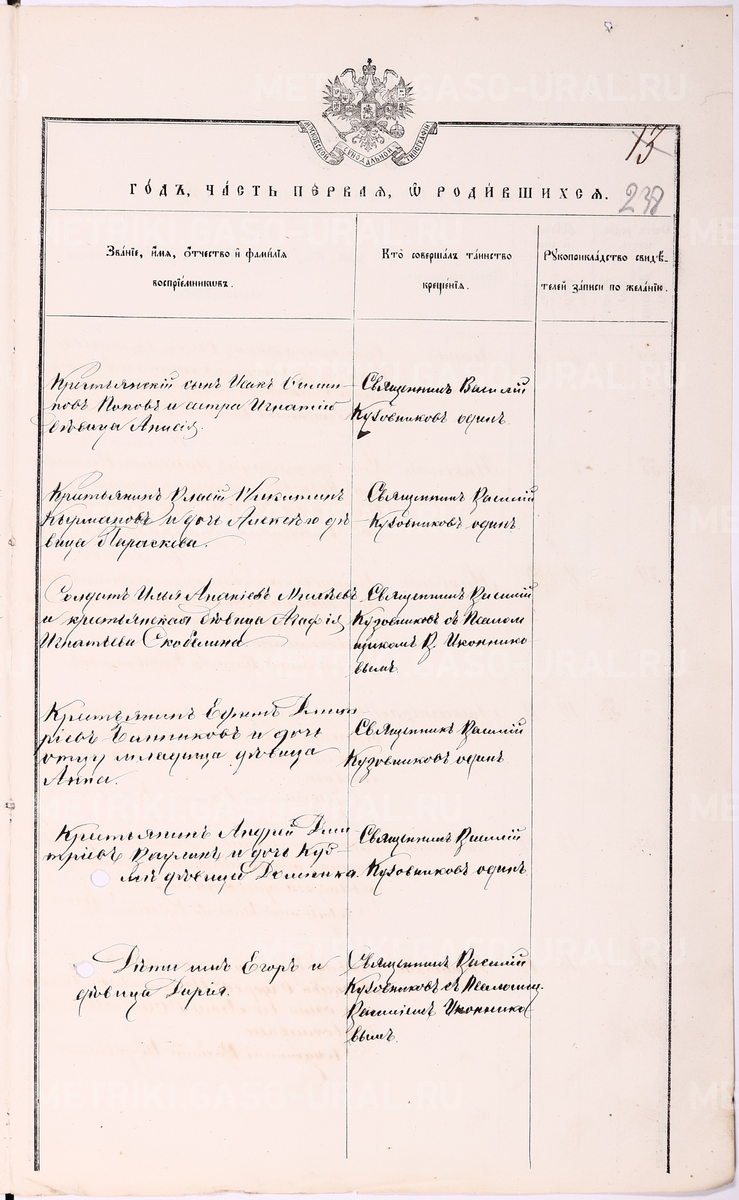 METRIKI.GASO-URAL.RU
МОСКОВСКОЙ СѴНОДАЛЬНОЙ ТИПОГРАФІИ
13
238
ГО́ДЪ, ЧА́СТЬ ПЕ́РВАЯ, Ѽ РОДИ́ВШИХСЯ.
Зва́нїе, и҆́мя, ѻ҆́тчество и҆ фами́лїя
воспрїе́мникѡвъ.
Кто̀ соверша́лъ та́инство
креще́нїя.
Рꙋкоприкла́дство свидѣ́-
телей за́писи по жела́нїю.
Крестьянскій сынъ Исакъ Филип-
повъ Поповъ и сестра Игнатію
дѣвица Анисія.
Священникъ Василій
Кузовниковъ одинъ
Крестьянинъ Власій Никитинъ
и дочь Алексѣю дѣ-
вица Параскева.
Священникъ Василій
Кузовниковъ одинъ
Солдатъ Илья Ананіевъ
и крестьянская дѣвица Агафія
Игнатьева Скобелина
Священникъ Василій
Кузовниковъ съ Псалом
щикомъ В. Иконнико
вымъ.
Крестьянинъ Ефимъ Димит-
ріевъ Банниковъ и дочь
отцу младенца дѣвица
Анна.
Священникъ Василій
Кузовниковъ одинъ
Крестьянинъ Андрей Дими
тріевъ Ваулинъ и дочь Кузь-
мы дѣвица Домника.
Священникъ Василій
Кузовниковъ одинъ
Дѣти ихъ Егоръ и
дѣвица Дарія.
Священникъ Василій
Кузовниковъ съ Псаломщ.
Василіемъ Иконнико
вымъ.